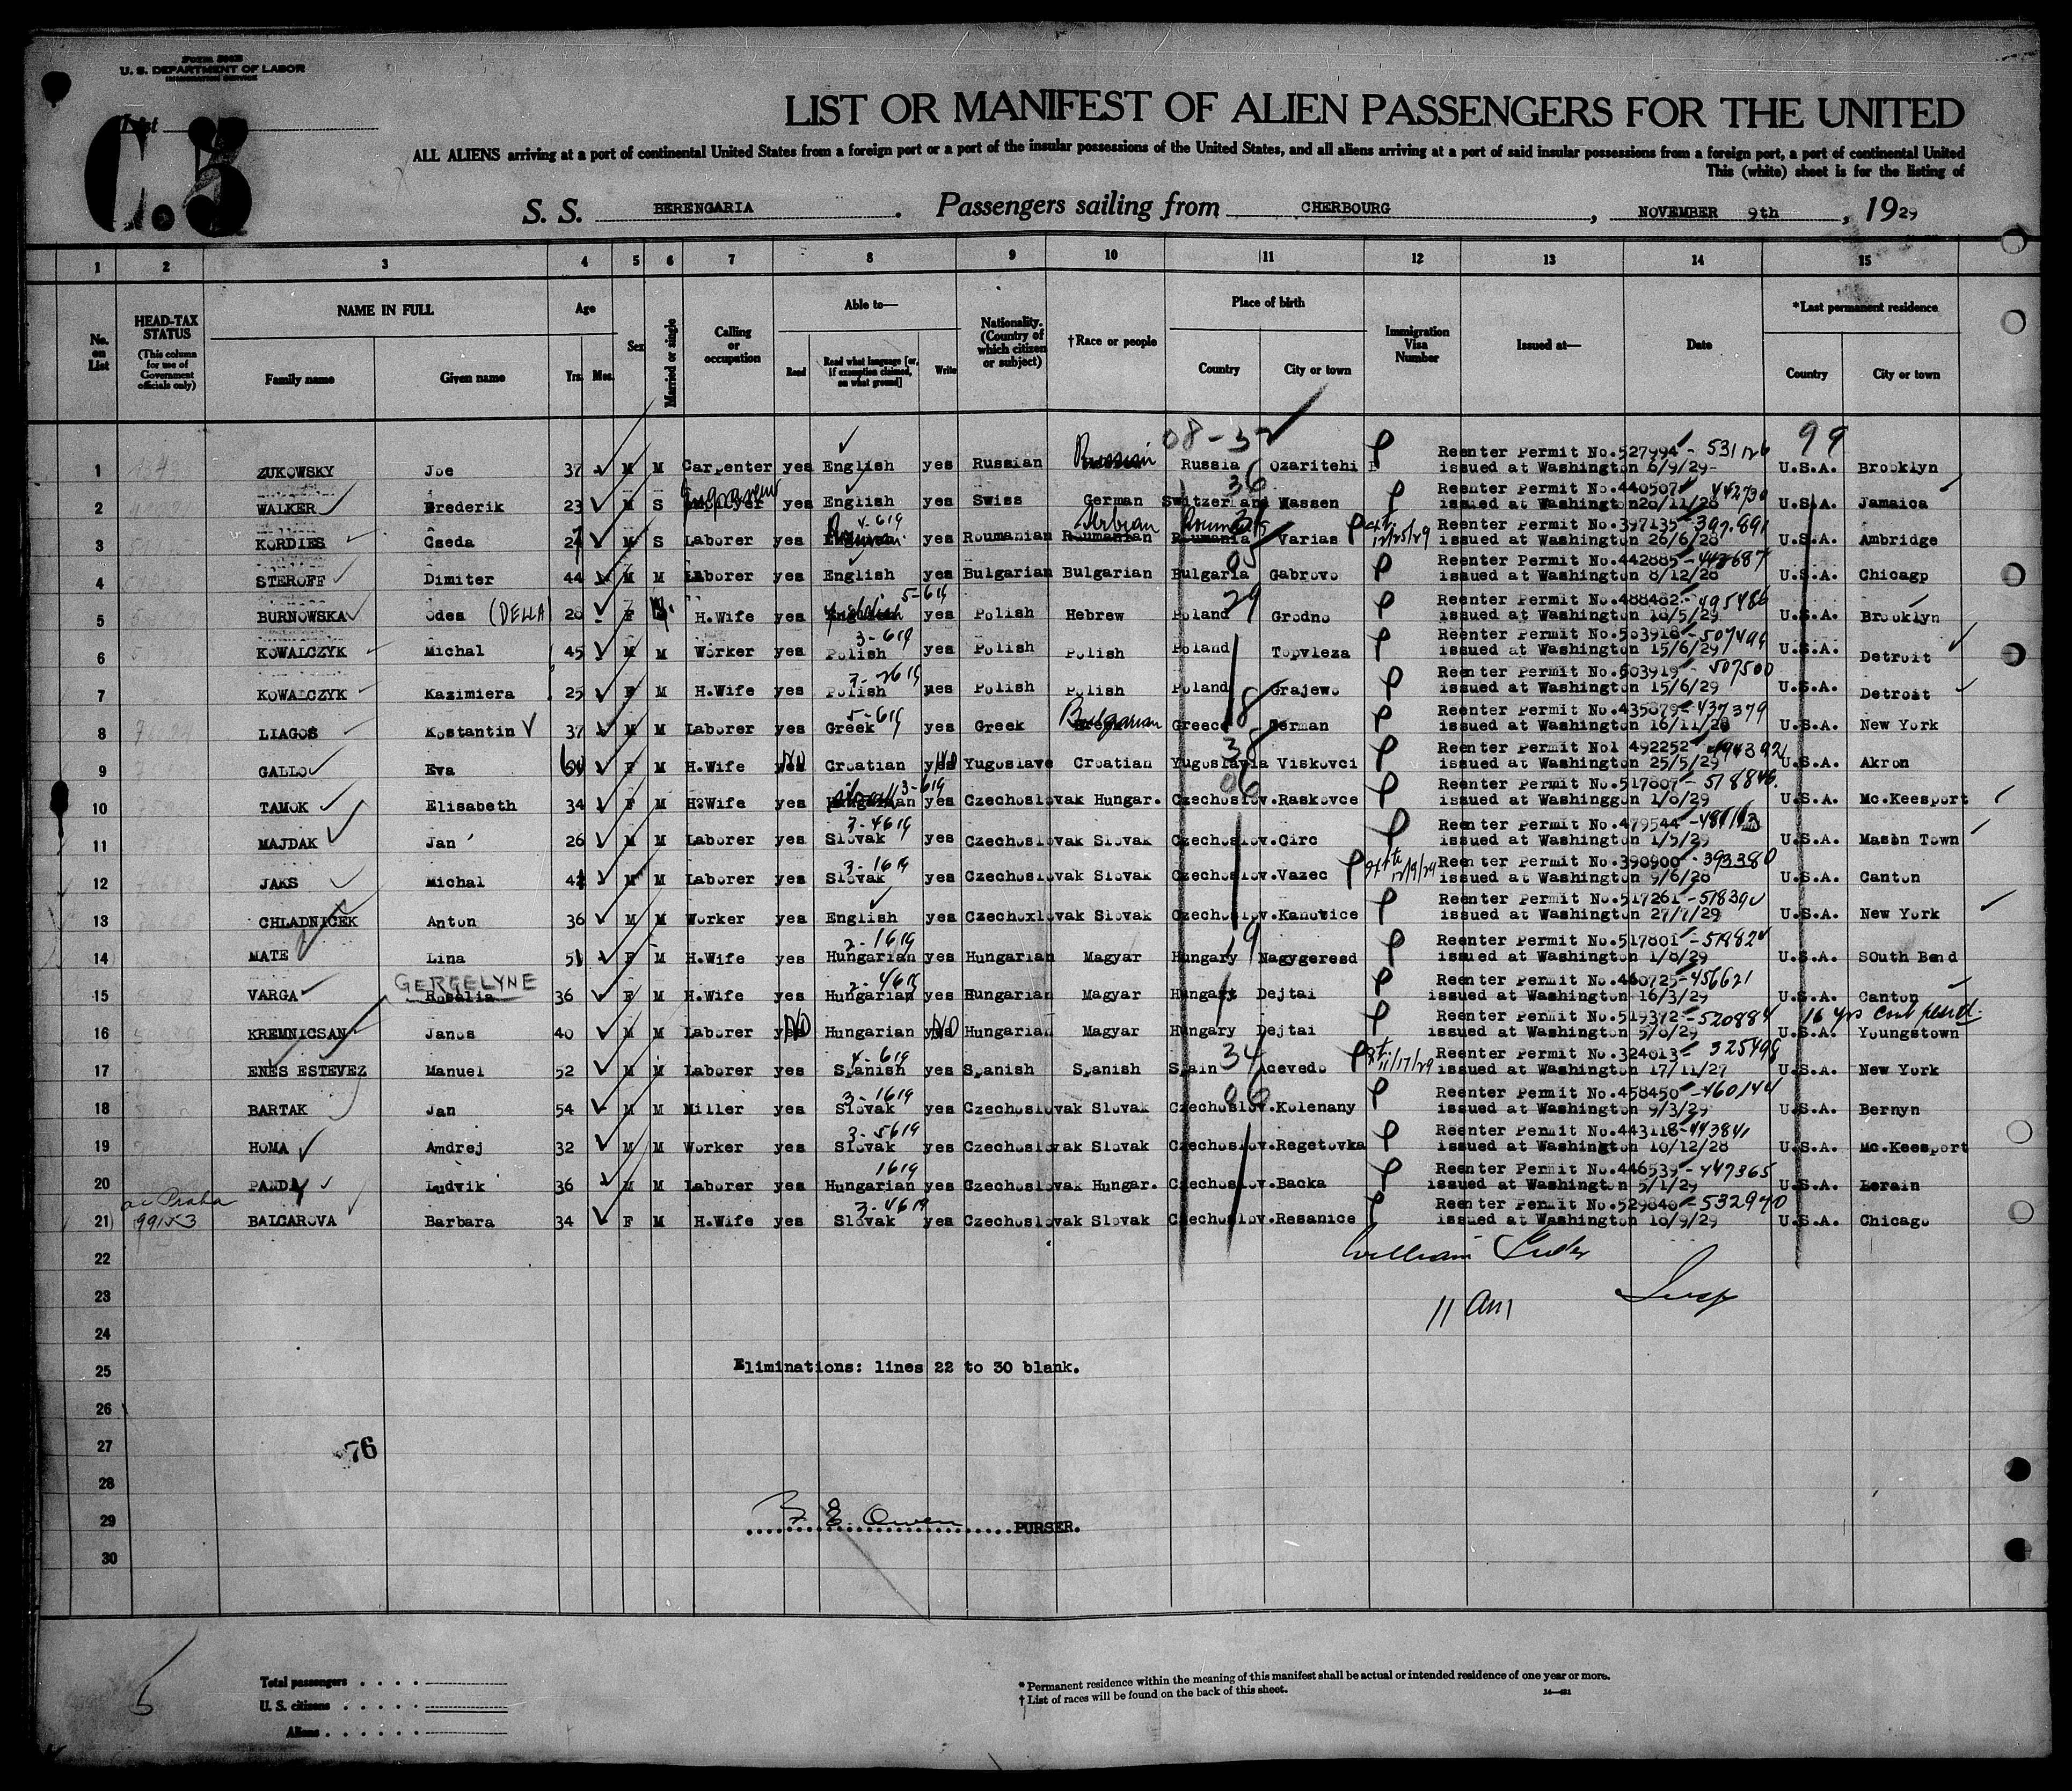 Form 500B
U. S. DEPARTMENT OF LABOR
IMMIGRATION SERVICE
List
C.3
LIST OR MANIFEST OF ALIEN PASSENGERS FOR THE UNITED
ALL ALIENS arriving at a port of continental United States from a foreign port or a port of the insular possessions of the United States, and all aliens arriving at a port of said insular possessions from a foreign port, a port of continental United
This (white) sheet is for the listing of
S. S. BERENGARIA. Passengers sailing from CHERBOURG, NOVEMBER 9th, 1929
1 2 3 4 5 6 7 8 9 10 11 12 13 14 15
No. on List
HEAD-TAX STATUS (This column for use of Government officials only)
NAME IN FULL Family name Given name
Age Yrs. Mos.
Sex
Married or single
Calling or occupation
Able to— Read Read what language [or, if exemption claimed, on what ground] Write
Nationality. (Country of which citizen or subject)
†Race or people
Place of birth Country City or town
Immigration Visa Number
Issued at—
Date
*Last permanent residence Country City or town
08-32 99
1 ZUKOWSKY Joe 37 M M Carpenter yes English yes Russian Russian Russia Ozaritehi Reenter Permit No.527994 - 531126 issued at Washington 6/9/29- U.S.A. Brooklyn
2 WALKER Frederik 23 M S Engraver yes English yes Swiss German Switzerland Wassen 36 Reenter Permit No.440507 442730 issued at Washington 28/11/28 U.S.A. Jamaica
3 KORDIES Cseda 27 M S Laborer yes 4-619 yes Roumanian Roumanian Serbian Roumania Varias 12/25/29 Reenter Permit No.397135-397.891 issued at Washington 26/6/28 U.S.A. Ambridge
4 STEROFF Dimiter 44 M M Laborer yes English yes Bulgarian Bulgarian Bulgaria Gabrovo 05 Reenter Permit No.442885-443687 issued at Washington 8/12/28 U.S.A. Chicagp
5 BURNOWSKA Odes (DELLA) 28 F H.Wife yes English 5-619 yes Polish Hebrew Poland Grodno 29 Reenter Permit No.488482-495486 issued at Washington 18/5/29 U.S.A. Brooklyn
6 KOWALCZYK Michal 45 M M Worker yes Polish 3-619 yes Polish Polish Poland Topvleza Reenter Permit No.503918-507499 issued at Washington 15/6/29 U.S.A. Detroit
7 KOWALCZYK Kazimiera 25 F M H.Wife yes Polish 3-2619 yes Polish Polish Poland Grajewo Reenter Permit No.503919 - 507500 issued at Washington 15/6/29 U.S.A. Detroit
8 LIAGOS Kostantin 37 M M Laborer yes Greek 5-619 yes Greek Bulgarian Greece German 18 Reenter Permit No.435879-437379 issued at Washington 16/11/28 U.S.A. New York
9 GALLO Eva F M H.Wife yes NO Croatian yes NO Yugoslave Croatian Yugoslavia Viskovci 38 Reenter Permit Nol 492252-494392 issued at Washington 25/5/29 U.S.A. Akron
10 TAMOK Elisabeth 34 F M H?Wife yes Hungarian 3-619 yes Czechoslovak Hungar. Czechoslov.Raskovce 06 Reenter Permit No.517807-518846. issued at Washinggon 1/8/29 U.S.A. Mc.Keesport
11 MAJDAK Jan 26 M M Laborer yes Slovak 3-4619 yes Czechoslovak Slovak Czechoslov.Circ Reenter Permit No.479544 issued at Washington 1/5/29 U.S.A. Mason Town
12 JAKS Michal M M Laborer yes Slovak 3-1619 yes Czechoslovak Slovak Czechoslov.Vazec 12/9/29 Reenter Permit No.390900-393380 issued at Washington 9/6/28 U.S.A. Canton
13 CHLADNICEK Anton 36 M M Worker yes English yes Czechoxlovak Slovak Czechoslov.Kanovice Reenter Permit No.517261-518390 issued at Washington 27/7/29 U.S.A. New York
14 MATE Lina 51 F M H.Wife yes Hungarian 2-1619 yes Hungarian Magyar Hungary Nagygeresd 19 Reenter Permit No.517801-519824 issued at Washington 1/8/29 U.S.A. SOuth Bend
15 VARGA Rosalia GERGELYNE 36 F M H.Wife yes Hungarian 2-4619 yes Hungarian Magyar Hungary Dejtai Reenter Permit No.460725-456621 issued at Washington 16/3/29 U.S.A. Canton
16 KREMNICSAN Janos 40 M M Laborer yes NO Hungarian yes NO Hungarian Magyar Hungary Dejtai Reenter Permit No.519372-520884 issued at Washington 5/8/29 U.S.A. Youngstown 16 yrs cont resid.
17 ENES ESTEVEZ Manuel 52 M M Laborer yes Spanish 4-619 yes Spanish Spanish Spain Acevedo 34 11/17/29 Reenter Permit No.324013-325498 issued at Washington 17/11/27 U.S.A. New York
18 BARTAK Jan 54 M M Miller yes Slovak 3-1619 yes Czechoslovak Slovak Czechoslov.Kolenany 06 Reenter Permit No.458450-460144 issued at Washington 9/3/29 U.S.A. Bernyn
19 HOMA Amdrej 32 M M Worker yes Slovak 3-5619 yes Czechoslovak Slovak Czechoslov.Regetovka Reenter Permit No.443118-443841 issued at Washington 10/12/28 U.S.A. Mc.Keesport
20 PANDY Ludvik 36 M M Laborer yes Hungarian 1619 yes Czechoslovak Hungar. Czechoslov.Backa Reenter Permit No.446539-447365 issued at Washington 5/1/29 U.S.A. Lorain
21 99153 BALCAROVA Barbara 34 F M H.Wife yes Slovak 3-4619 yes Czechoslovak Slovak Czechoslov.Resanice Reenter Permit No.529846-532970 issued at Washington 18/9/29 U.S.A. Chicago
22 William
23 11 AM Insp
24
25 Eliminations: lines 22 to 30 blank.
26
27 76
28
29 Owen PURSER.
30
5
Total passengers
U. S. citizens
Aliens
* Permanent residence within the meaning of this manifest shall be actual or intended residence of one year or more.
† List of races will be found on the back of this sheet.